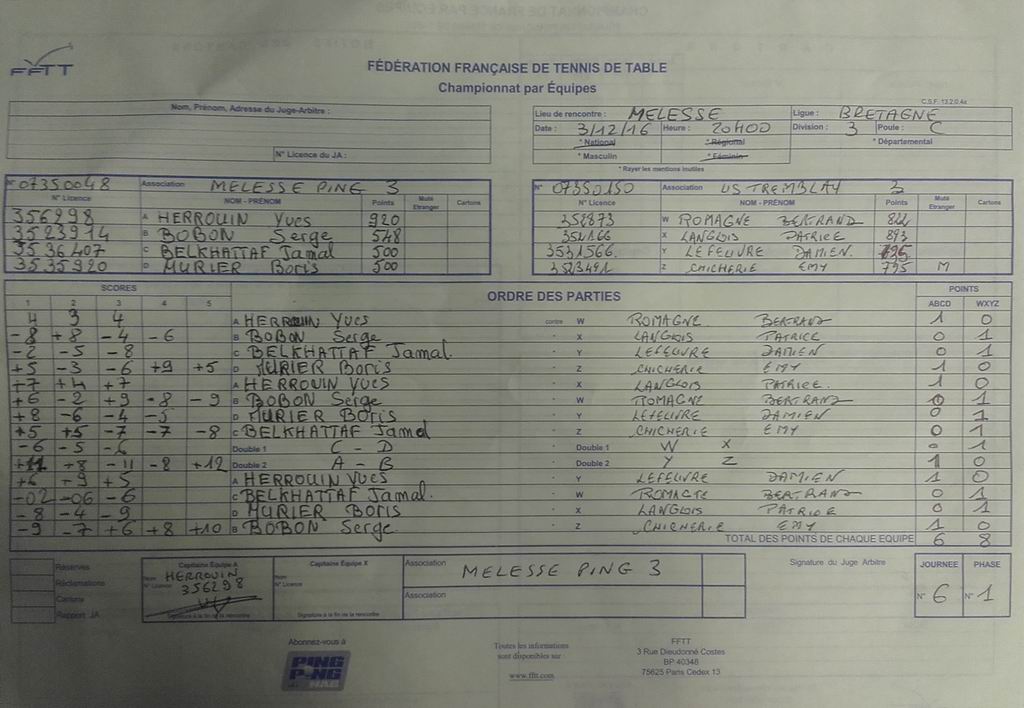 FFTT
FÉDÉRATION FRANÇAISE DE TENNIS DE TABLE
Championnat par Équipes
C.S.F. 13.2.0.4x
Nom, Prénom, Adresse du Juge-Arbitre :
N° Licence du JA :
Lieu de rencontre : MELESSE Ligue : BRETAGNE
Date : 3/12/16 Heure : 20H00 Division : 3 Poule : C
* National * Régional * Départemental
* Masculin * Féminin
* Rayer les mentions inutiles
N° 07350048 Association MELESSE PING 3
N° Licence NOM - PRÉNOM Points Muté Etranger Cartons
356298 A HERROUIN Yves 920
3523914 B BOBON Serge 548
3536407 C BELKHATTAF Jamal 500
3535920 D MURIER Boris 500
N° 07350150 Association US TREMBLAY 3
N° Licence NOM - PRÉNOM Points Muté Etranger Cartons
352873 W ROMAGNE BERTRAND
354166 X LANGLOIS PATRICE 893
3531566 Y LEFEUVRE DAMIEN
3523491 Z CHICHERIE EMY 795 M
SCORES ORDRE DES PARTIES POINTS
1 2 3 4 5 ABCD WXYZ
4 3 4 A HERROUIN Yves contre W ROMAGNE BERTRAND 1 0
-8 +8 -4 -6 B BOBON Serge X LANGLOIS PATRICE 0 1
-2 -5 -8 C BELKHATTAF Jamal Y LEFEUVRE DAMIEN 0 1
+5 -3 -6 +9 +5 D MURIER Boris Z CHICHERIE EMY 1 0
+7 +4 +7 A HERROUIN Yves X LANGLOIS PATRICE 1 0
+6 -2 +9 -8 -9 B BOBON Serge W ROMAGNE BERTRAND 0 1
+8 -6 -4 -5 D MURIER Boris Y LEFEUVRE DAMIEN 0 1
+5 +5 -7 -7 -8 C BELKHATTAF Jamal Z CHICHERIE EMY 0 1
-6 -5 -6 Double 1 C - D Double 1 W X 0 1
+11 +8 -11 -8 +12 Double 2 A - B Double 2 Y Z 1 0
+6 +9 +5 A HERROUIN Yves Y LEFEUVRE DAMIEN 1 0
-02 -06 -6 C BELKHATTAF Jamal W ROMAGNE BERTRAND 0 1
-8 -4 -9 D MURIER Boris X LANGLOIS PATRICE 0 1
-9 -7 +6 +8 +10 B BOBON Serge Z CHICHERIE EMY 1 0
TOTAL DES POINTS DE CHAQUE EQUIPE 6 8
Réserves
Réclamations
Cartons
Rapport JA
Capitaine Équipe A
Nom HERROUIN
N° Licence 356298
Signature à la fin de la rencontre
Capitaine Équipe X
Nom
N° Licence
Signature à la fin de la rencontre
Association MELESSE PING 3
Association
Signature du Juge Arbitre
JOURNEE PHASE
N° 6 N° 1
Abonnez-vous à
PING PONG MAG
Toutes les informations
sont disponibles sur
www.fftt.com
FFTT
3 Rue Dieudonné Costes
BP 40348
75625 Paris Cedex 13